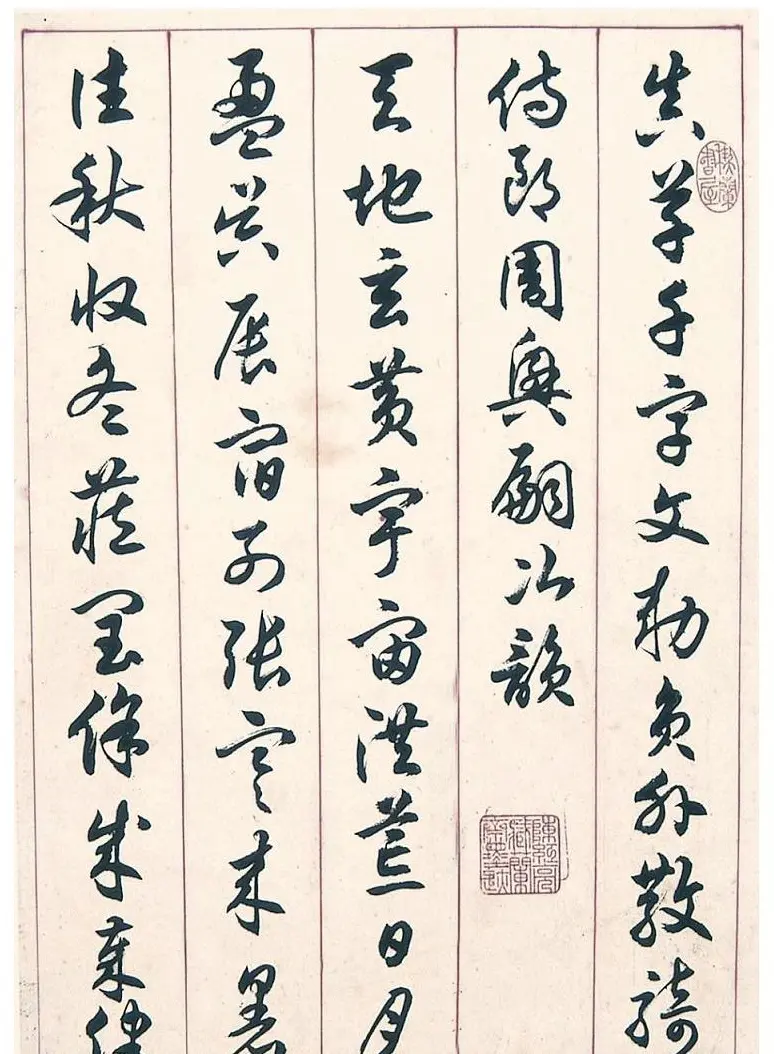 真草千字文勅員外散騎
侍郎周興嗣次韻
天地玄黃宇宙洪荒日月
盈昃辰宿列張寒來暑
往秋收冬藏閏餘成歲律